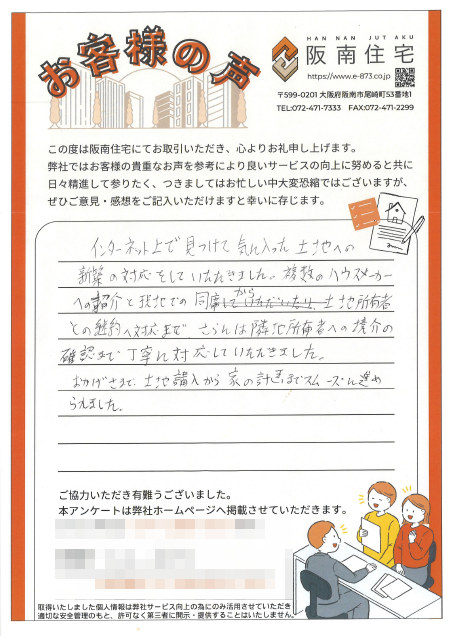 お客様の声
HAN NAN JUT AKU
阪南住宅
https://www.e-873.co.jp
〒599-0201 大阪府阪南市尾崎町53番地1
TEL:072-471-7333 FAX:072-471-2299
この度は阪南住宅にてお取引いただき、心よりお礼申し上げます。
弊社ではお客様の貴重なお声を参考により良いサービスの向上に努めると共に
日々精進して参りたく、つきましてはお忙しい中大変恐縮ではございますが、
ぜひご意見・感想をご記入いただけますと幸いに存じます。
インターネット上で見つけて気に入った土地への
新築の対応をしていただきました。複数のハウスメーカー
への紹介と現地での同席から土地所有者
との契約へ対応まで、さらには隣地所有者への境介の
確認まで丁寧に対応していただきました。
おかげさまで、土地購入から家の計画までスムーズに進め
られました。
ご協力いただき有難うございました。
本アンケートは弊社ホームページへ掲載させていただきます。
取得いたしました個人情報は弊社サービス向上の為にのみ活用させていただき
適切な安全管理のもと、許可なく第三者に開示・提供することはいたしません。